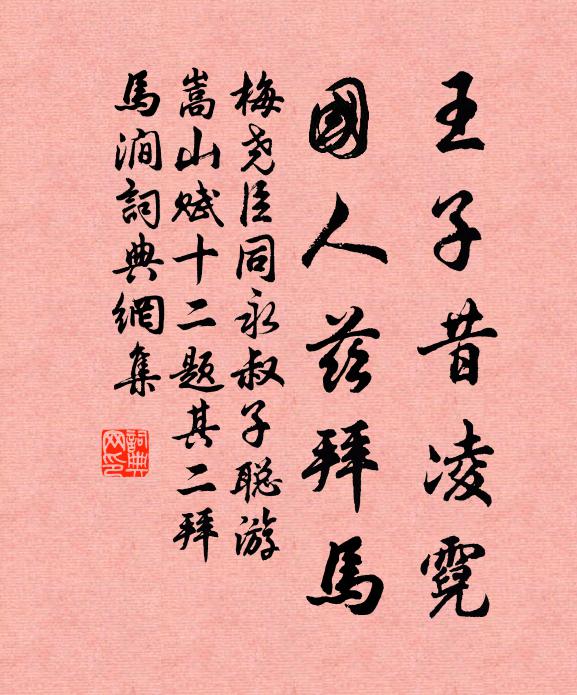 王子昔凌霓
國人茲拜馬
梅堯臣同永叔子聪游
嵩山赋十二题其二拜
馬澗詞典網集
詞典
网印